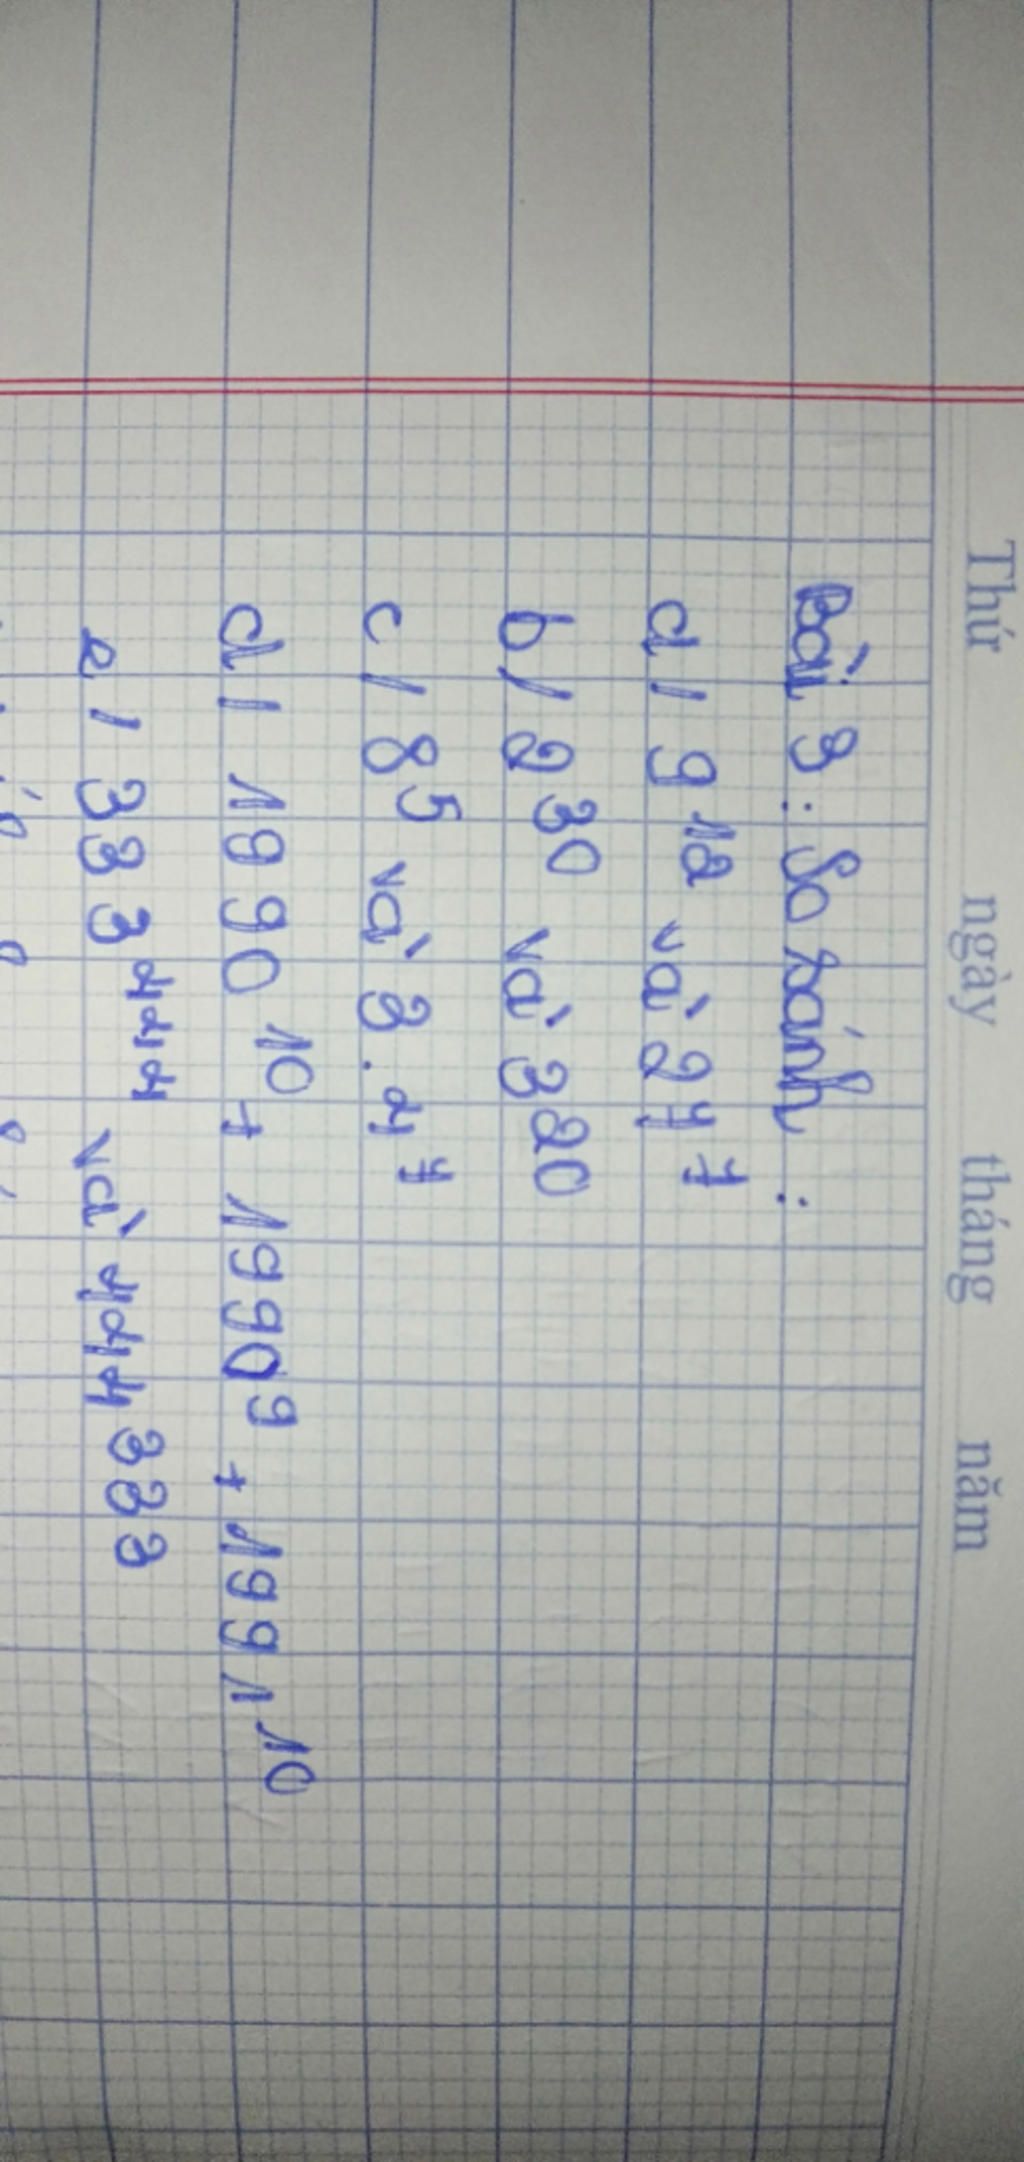 Thứ ngày tháng năm
Bài 3: So sánh:
a/ 9¹² và 27⁷
b/ 2³⁰ và 3²⁰
c/ 8⁵ và 3.4⁷
d/ 1990¹⁰ + 1990⁹ + 1991¹⁰
e/ 333⁴⁴⁴ và 444³³³